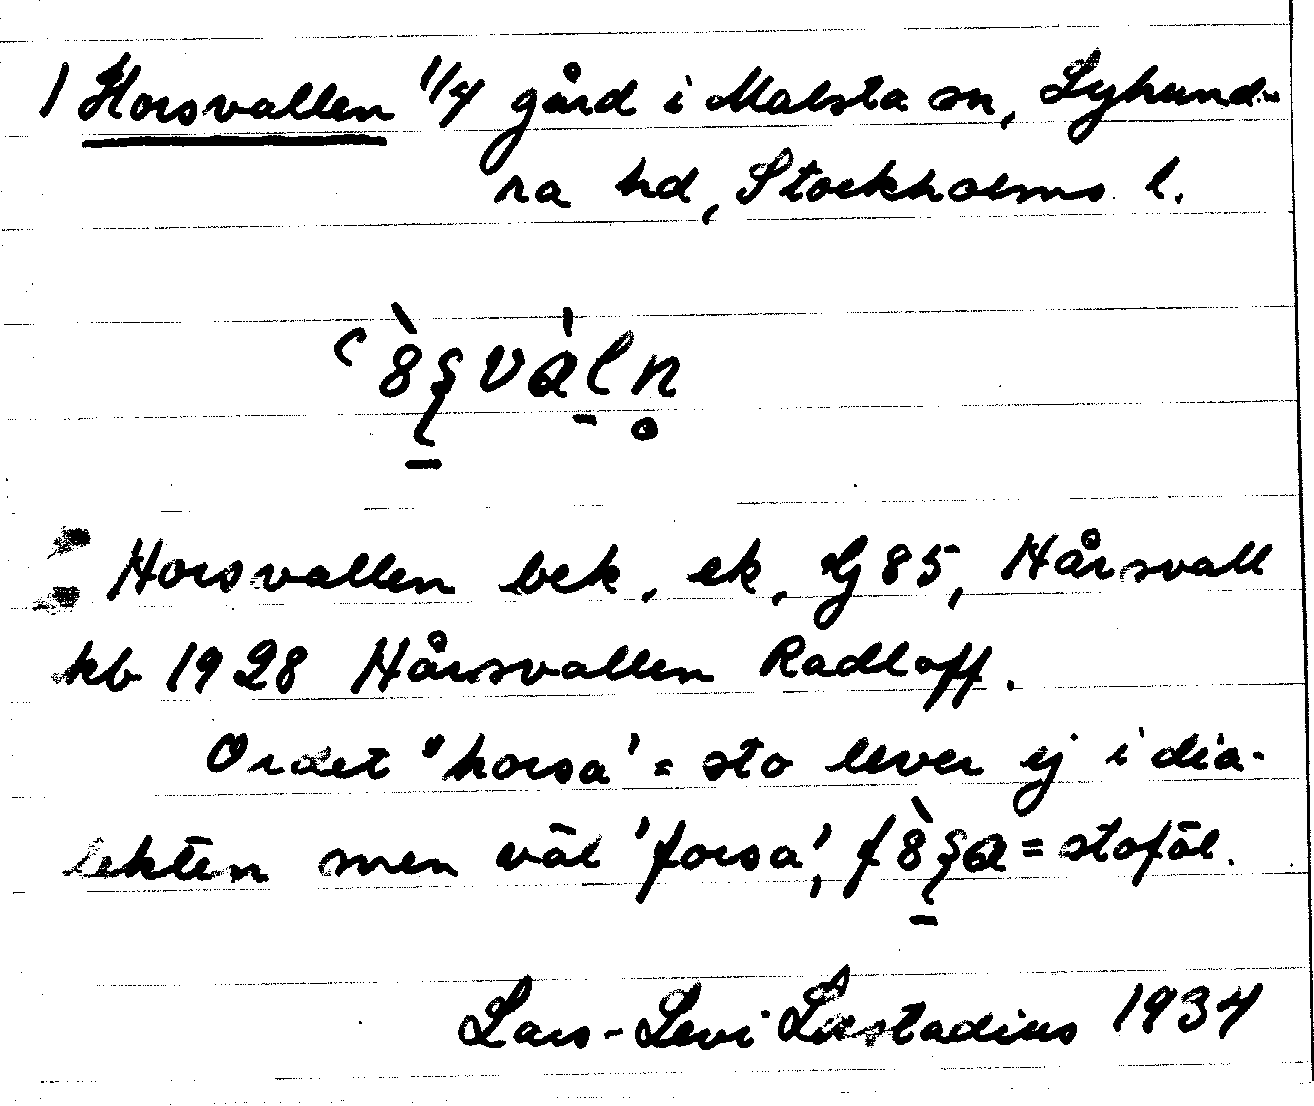 1 Horsvallen 1/4 gård i Malsta sn, Lyhund-
ra hd, Stockholms l.
Horsvallen bek. ek. G 85, Hårsvall
kb 1928 Hårsvallen Radloff.
Ordet "horsa' = sto lever ej i dia-
lekten men väl 'forsa', = stoföl.
Lars-Levi Læstadius 1934